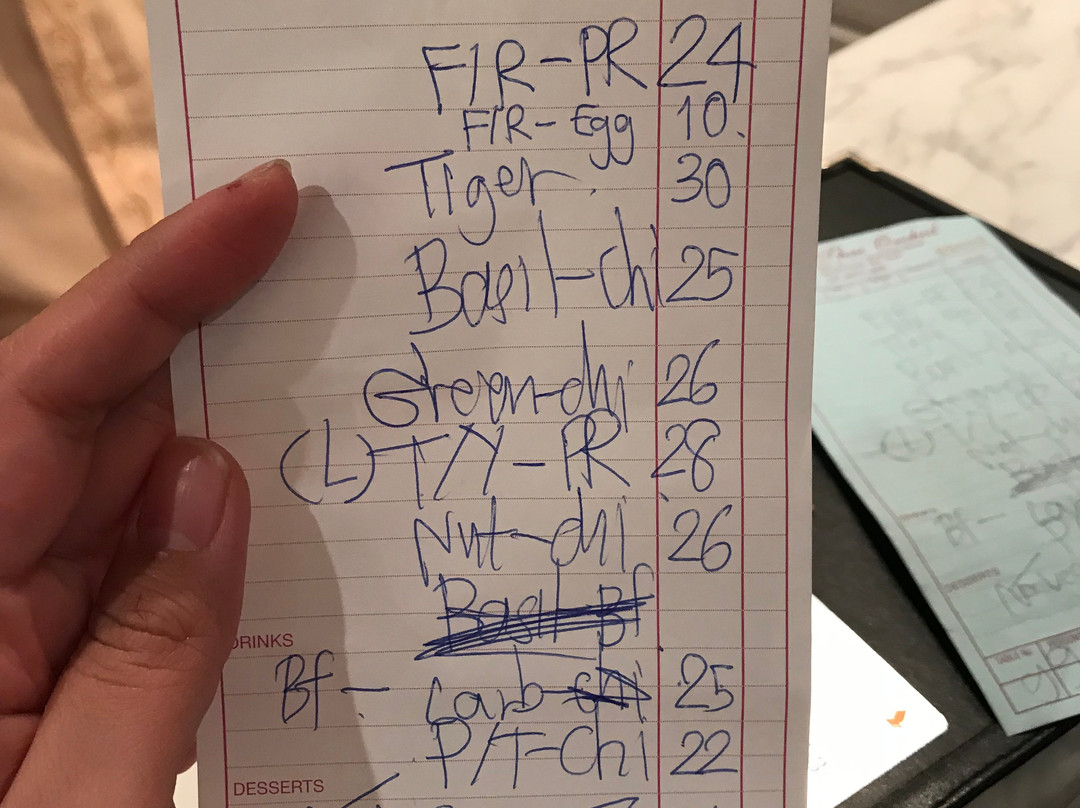 F/R-PR 24
F/R-Egg 10.
Tiger. 30
Basil-chi 25
Green-chi 26
(L) T/Y-PR 28
Nut-chi 26
Basil-Bf
DRINKS
Bf- carb-chi 25
P/T-Chi 22
DESSERTS